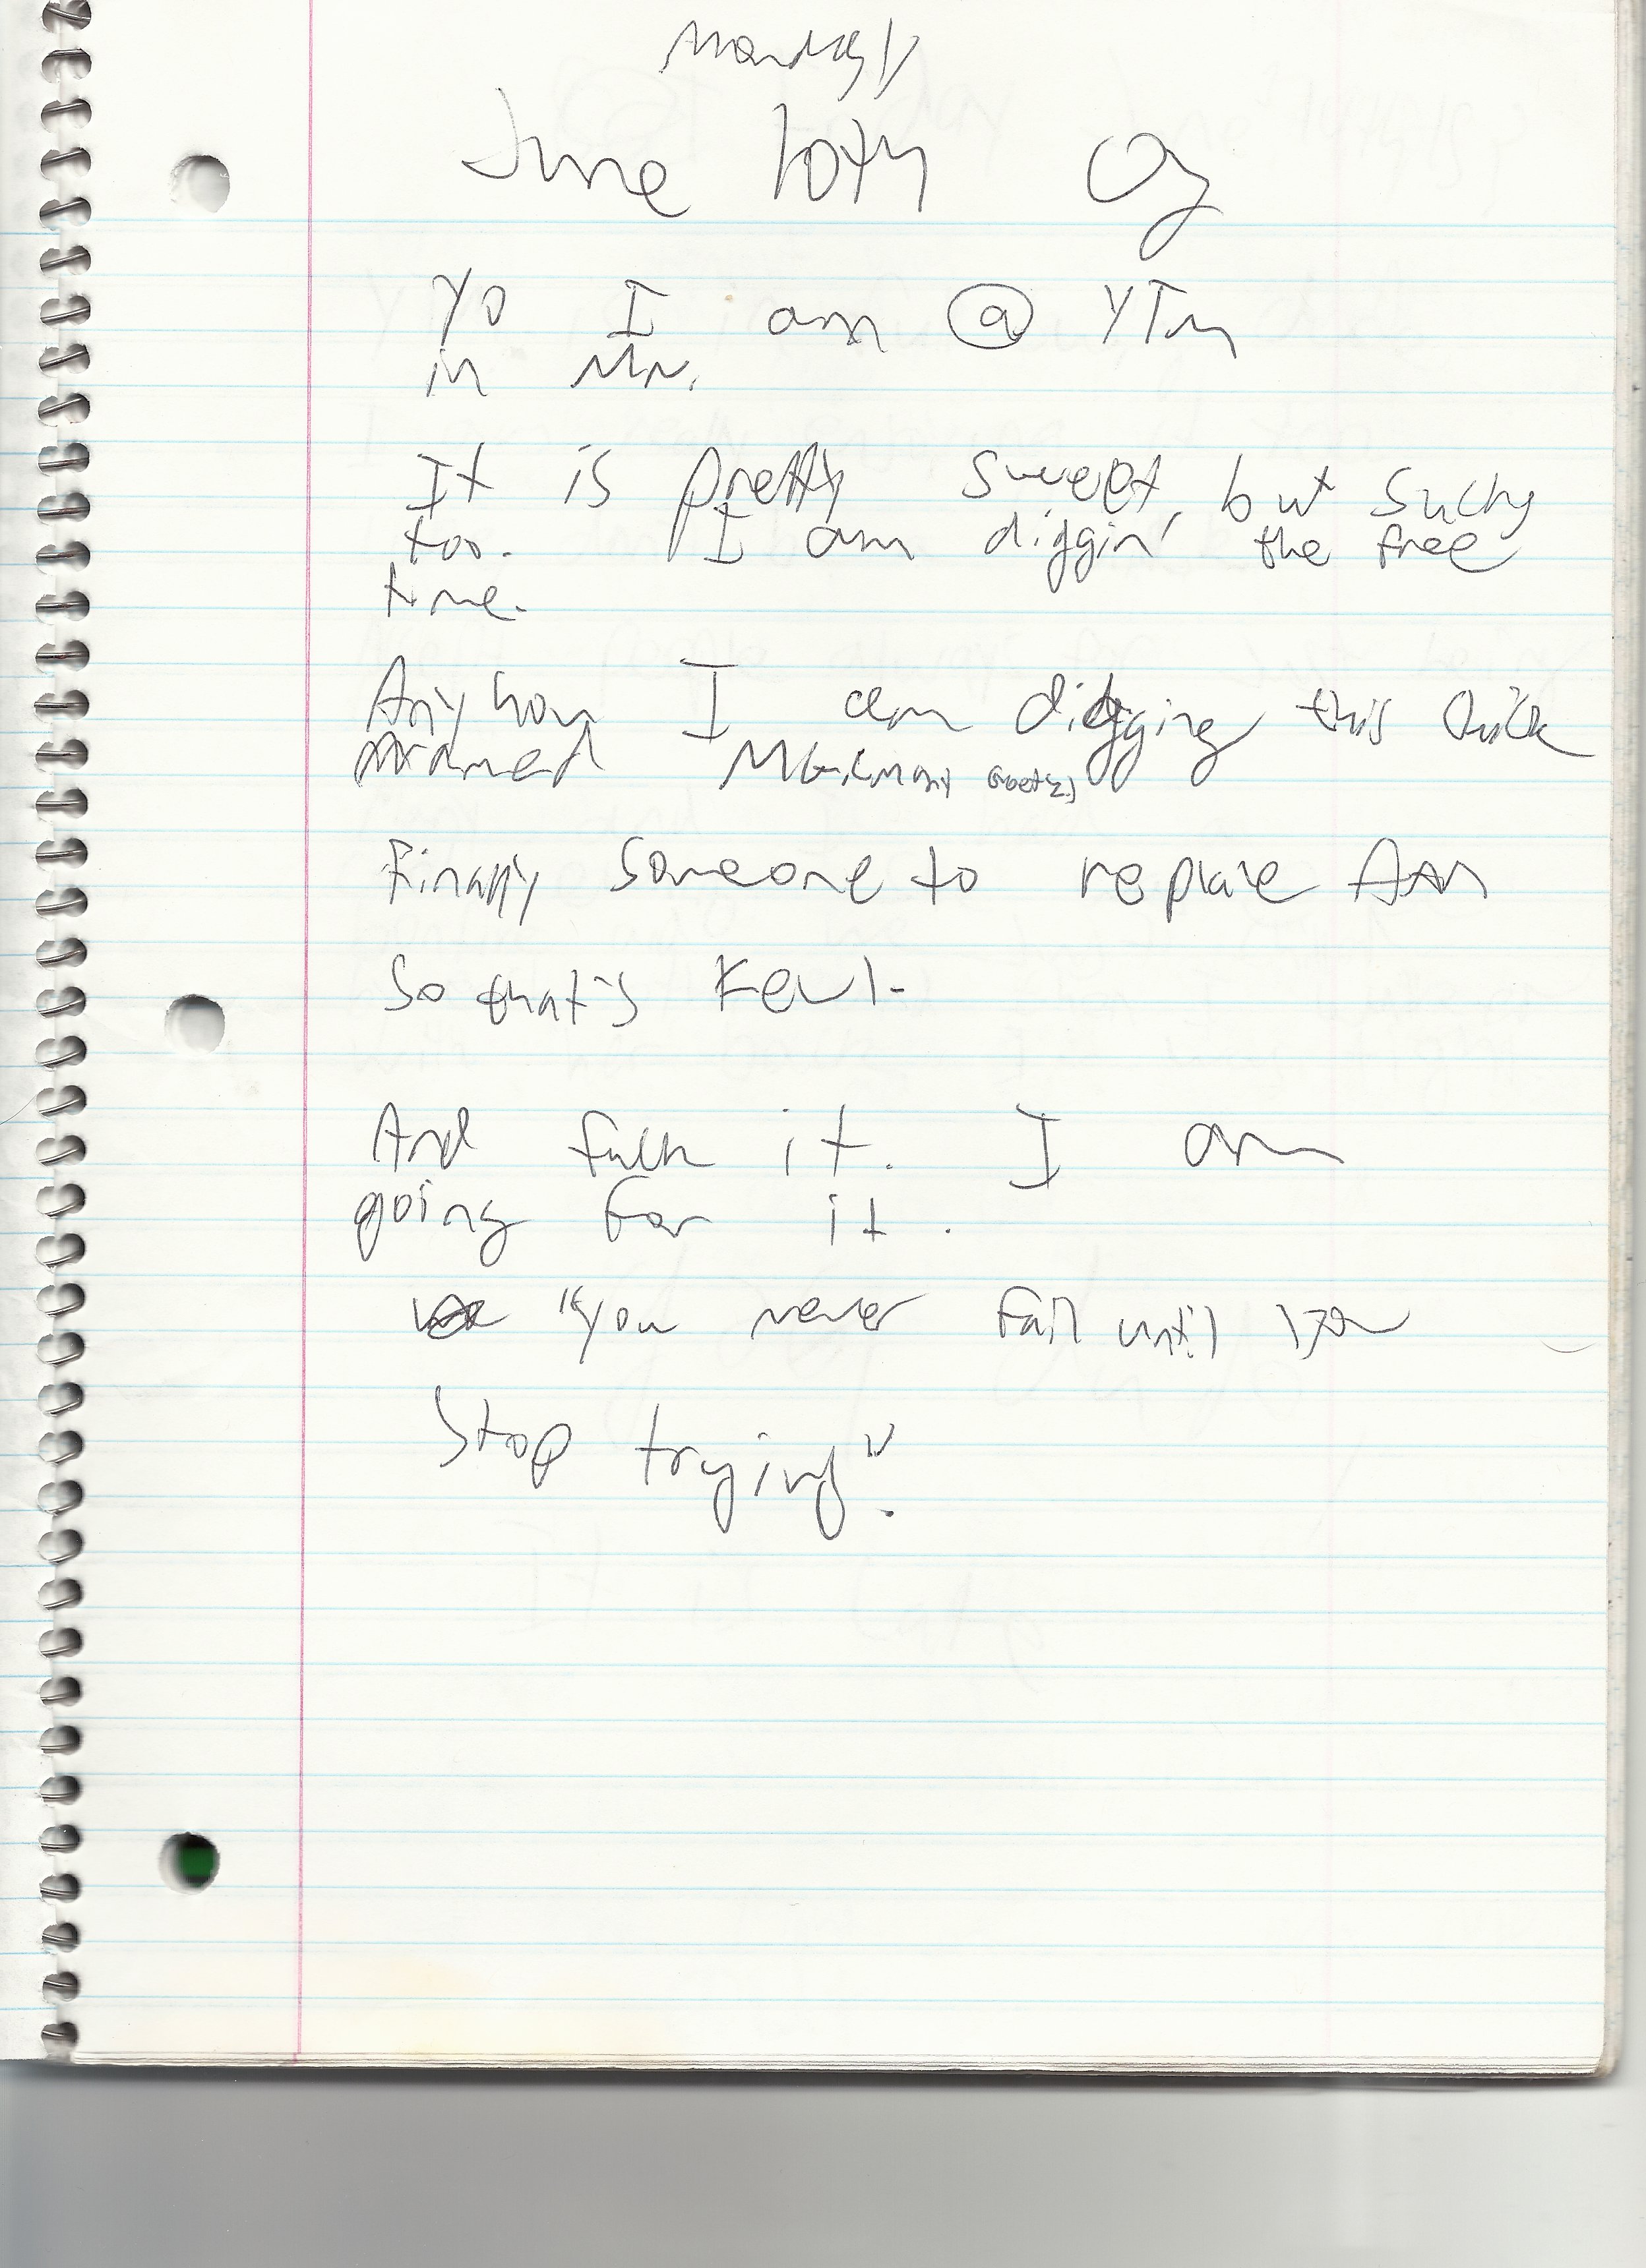 Monday
June 10th
Yo I am @ YTM
in MN.
It is pretty sweet, but sucky
too. I am diggin' the free
time.
Anyhow I am digging this chick
named
Finally someone to replace
So that's Kewl.
And fuck it. I am
going for it.
"you never fail until you
Stop trying".